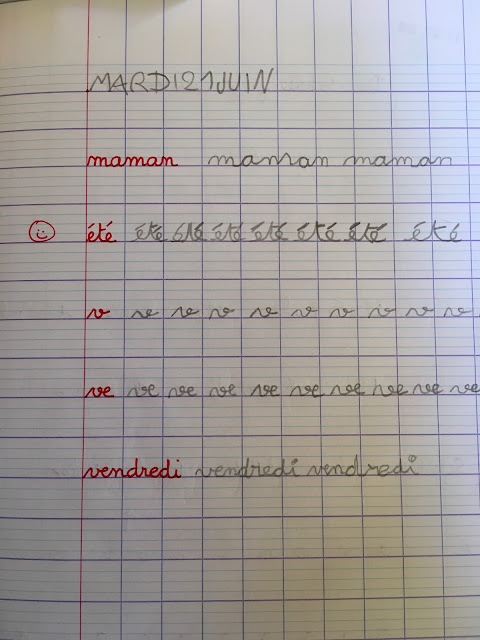 MARDI 21 JUIN
maman maman maman
été été été été été été été été
v v v v v v v v v v
ve ve ve ve ve ve ve ve ve ve
vendredi vendredi vendredi